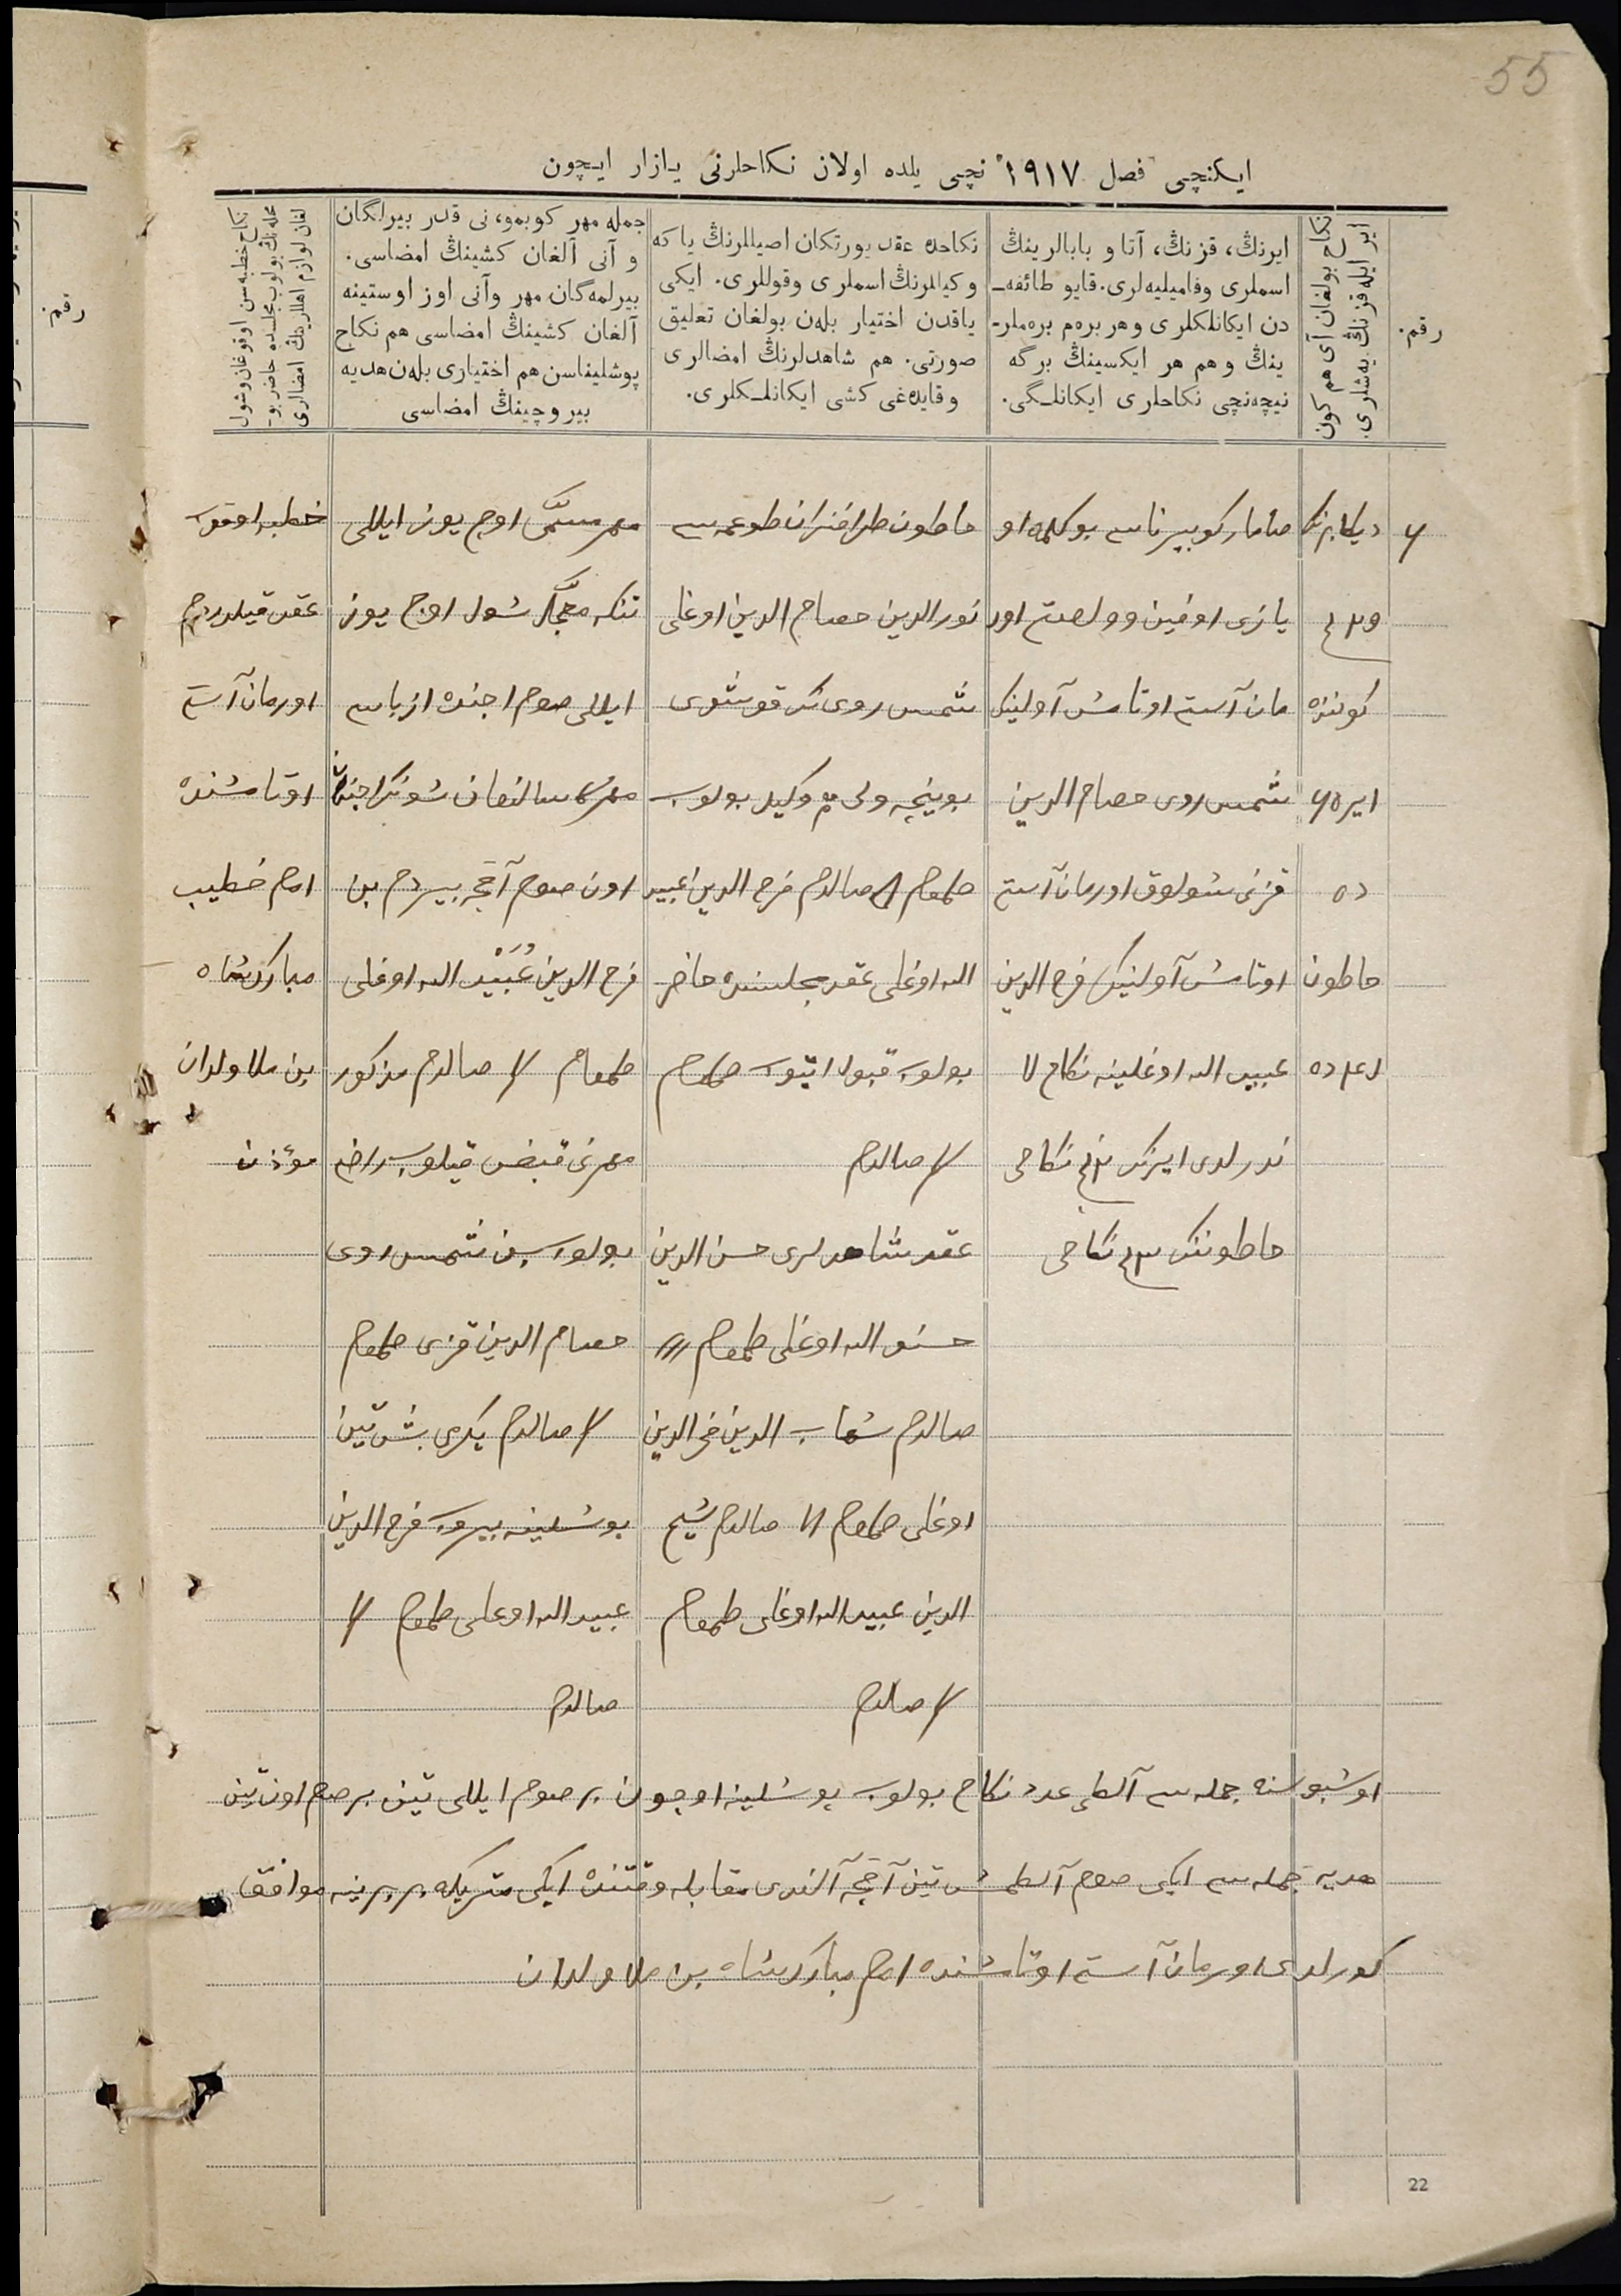 55
ایکنچی فصل ١٩١٧ نچی یلده اولان نکاحلرنی یازار ایچون
رقم.
نکاح بولغان آی هم کون
ایر ایله قزنڭ یه‌شلری.
ایرنڭ، قزنڭ، آتا و بابالرینڭ
اسملری وفامیلیه‌لری. قایو طائفه‌ـ
دن ایکانلکلری وهر بره‌م بره‌ملر-
ینڭ وهم هر ایکسینڭ برگه
نیچه‌نچی نکاحلری ایکانلـگی.
نکاحده عقد یورتکان اصیللرنڭ یا که
وکیللرنڭ اسملری وقوللری. ایکی
یاقدن اختیار بله‌ن بولغان تعلیق
صورتی. هم شاهدلرنڭ امضالری
وقایده‌غی کشی ایکانلـکلری.
جمله مهر کوبمو، نی قدر بیرلگان
و آنی آلغان کشینڭ امضاسی.
بیرلمه‌گان مهر وآنی اوز اوستینه
آلغان کشینڭ امضاسی هم نکاح
پوشلیناسن هم اختیاری بله‌ن هدیه
بیروچینڭ امضاسی
نکاح خطبه‌سن اوقوغان وشول
مجلسده حاضر بو-
لغان لوازم اهللارینڭ امضالری
رقم.
٦
دیکابرنڭ
کوننده
ایر ٦٥
ده
خاطون
ده
صامار کوبیرناسی بوکلمه او
یازی اوفین وولصتی اور
مان آستی اوتامش آولینڭ
شمس روی حصام الدین
قزنی شولوق اورمان آستی
اوتامش آولینڭ فرح الدین
عبید الله اوغلینه نکاح لا
ندرلدی ایرنڭ ٢نچی نکاحی
خاطوننڭ ٢نچی نکاحی
خاطون طرافندان طوغمه سی
نورالدین حصام الدین اوغلی
شمس روی نڭ قوشوی
بوینچه ولی هم وکیل بولوب
طمغام صالدم فرح الدین عبید
الله اوغلی عقد مجلسنده حاضر
بولوب قبول ایتوب طمغام
صالدم
عقد شاهدلری حسن الدین
حسنو الله اوغلی طمغام
صالدم شهاب الدین فخرالدین
اوغلی طمغام صالدم شیخ
الدین عبید الله اوغلی طمغام
صالدم
مهر مسمّی اوچ یوز ایللی
تنکه معجّل شول اوچ یوز
ایللی صوم اچنده ازباسی
اون صوم آقچه بیردم بن
فرح الدین عُبَیْد الله اوغلی
طمغام صالدم مذکور
مهرنی قبض قیلوب راضی
بولوب بن شمس روی
حصام الدین قزی طمغام
صالدم یکرمی بش تین
پوشلینه بیروب فرح الدین
عبید الله اوغلی طمغام
صالدم
خطبه اوقوب
عقد قیلدردم
اورمان آستی
اوتامشنده
امام خطیب
مبارکشاه
بن ملا ولدان
مؤذن
اوشبو سنه جمله سی آلطی عدد نکاح بولوب پوشلینه اوچون بر صوم ایللی تین بر صوم اون تین
هدیه جمله سی ایکی صوم آلطمش تین آقچه آلندی مقابله وقتنده ایکی متریکه بربرینه موافق
کورلدی اورمان آستی اوتامشنده امام مبارکشاه بن ملا ولدان
22